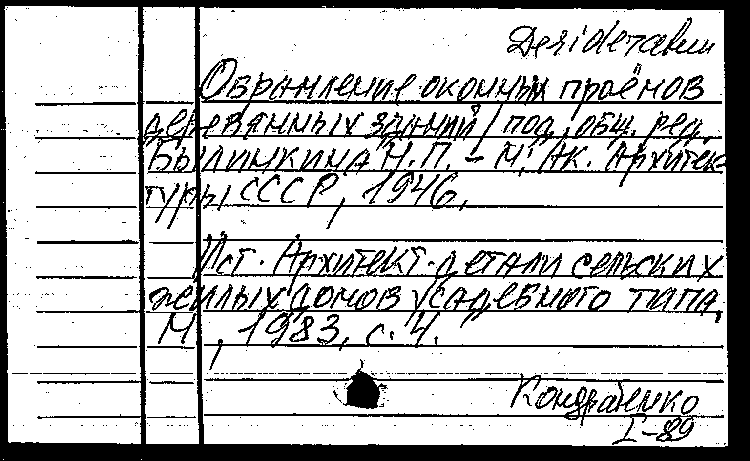 Desiderатаbии
Обрамление оконных проёмов
деревянных зданий / под общ. ред.
Былинкина Н.П. – М: Ак. Архитек-
туры СССР, 1946.
Ист. Архитект. детали сельских
жилых домов усадебного типа.
М, 1983, с. 4.
Кондратенко
I-89